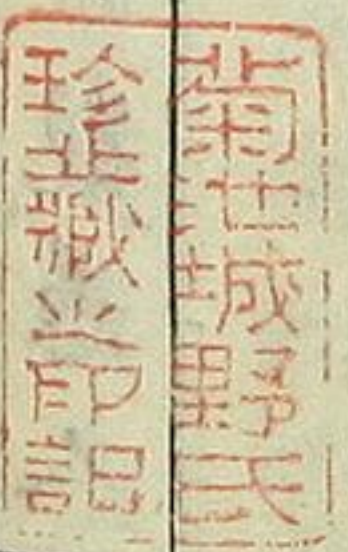 菊池城野氏
珍藏之印記